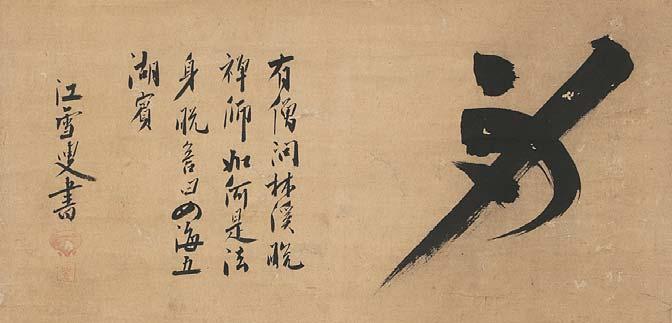 有僧問林溪脱
禅師如何是法
身脱答曰四海五
湖賓
江雪叟書